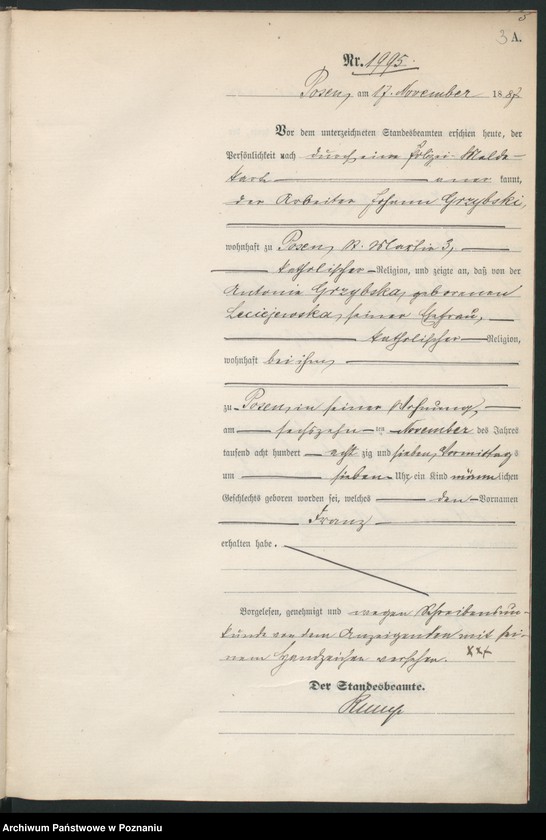 3 A.
Nr. 1995.
Posen, am 17. November 1887
Vor dem unterzeichneten Standesbeamten erschien heute, der
Persönlichkeit nach durch eine Polizei-Melde-
karte anerkannt,
der Arbeiter Johann Grzybski,
wohnhaft zu Posen, St. Martin 3,
katholischer Religion, und zeigte an, daß von der
Antonie Grzybska, geborenen
Leciejewska, seiner Ehefrau,
katholischer Religion,
wohnhaft bei ihm
zu Posen, in seiner Wohnung,
am sechszehnten November des Jahres
tausend acht hundert achtzig und sieben, Vormittags
um sieben Uhr ein Kind männlichen
Geschlechts geboren worden sei, welches den Vornamen
Franz
erhalten habe.
Vorgelesen, genehmigt und wegen Schreibensun-
kunde von dem Anzeigenden mit sei-
nem Handzeichen versehen. xxx
Der Standesbeamte.
Archiwum Państwowe w Poznaniu